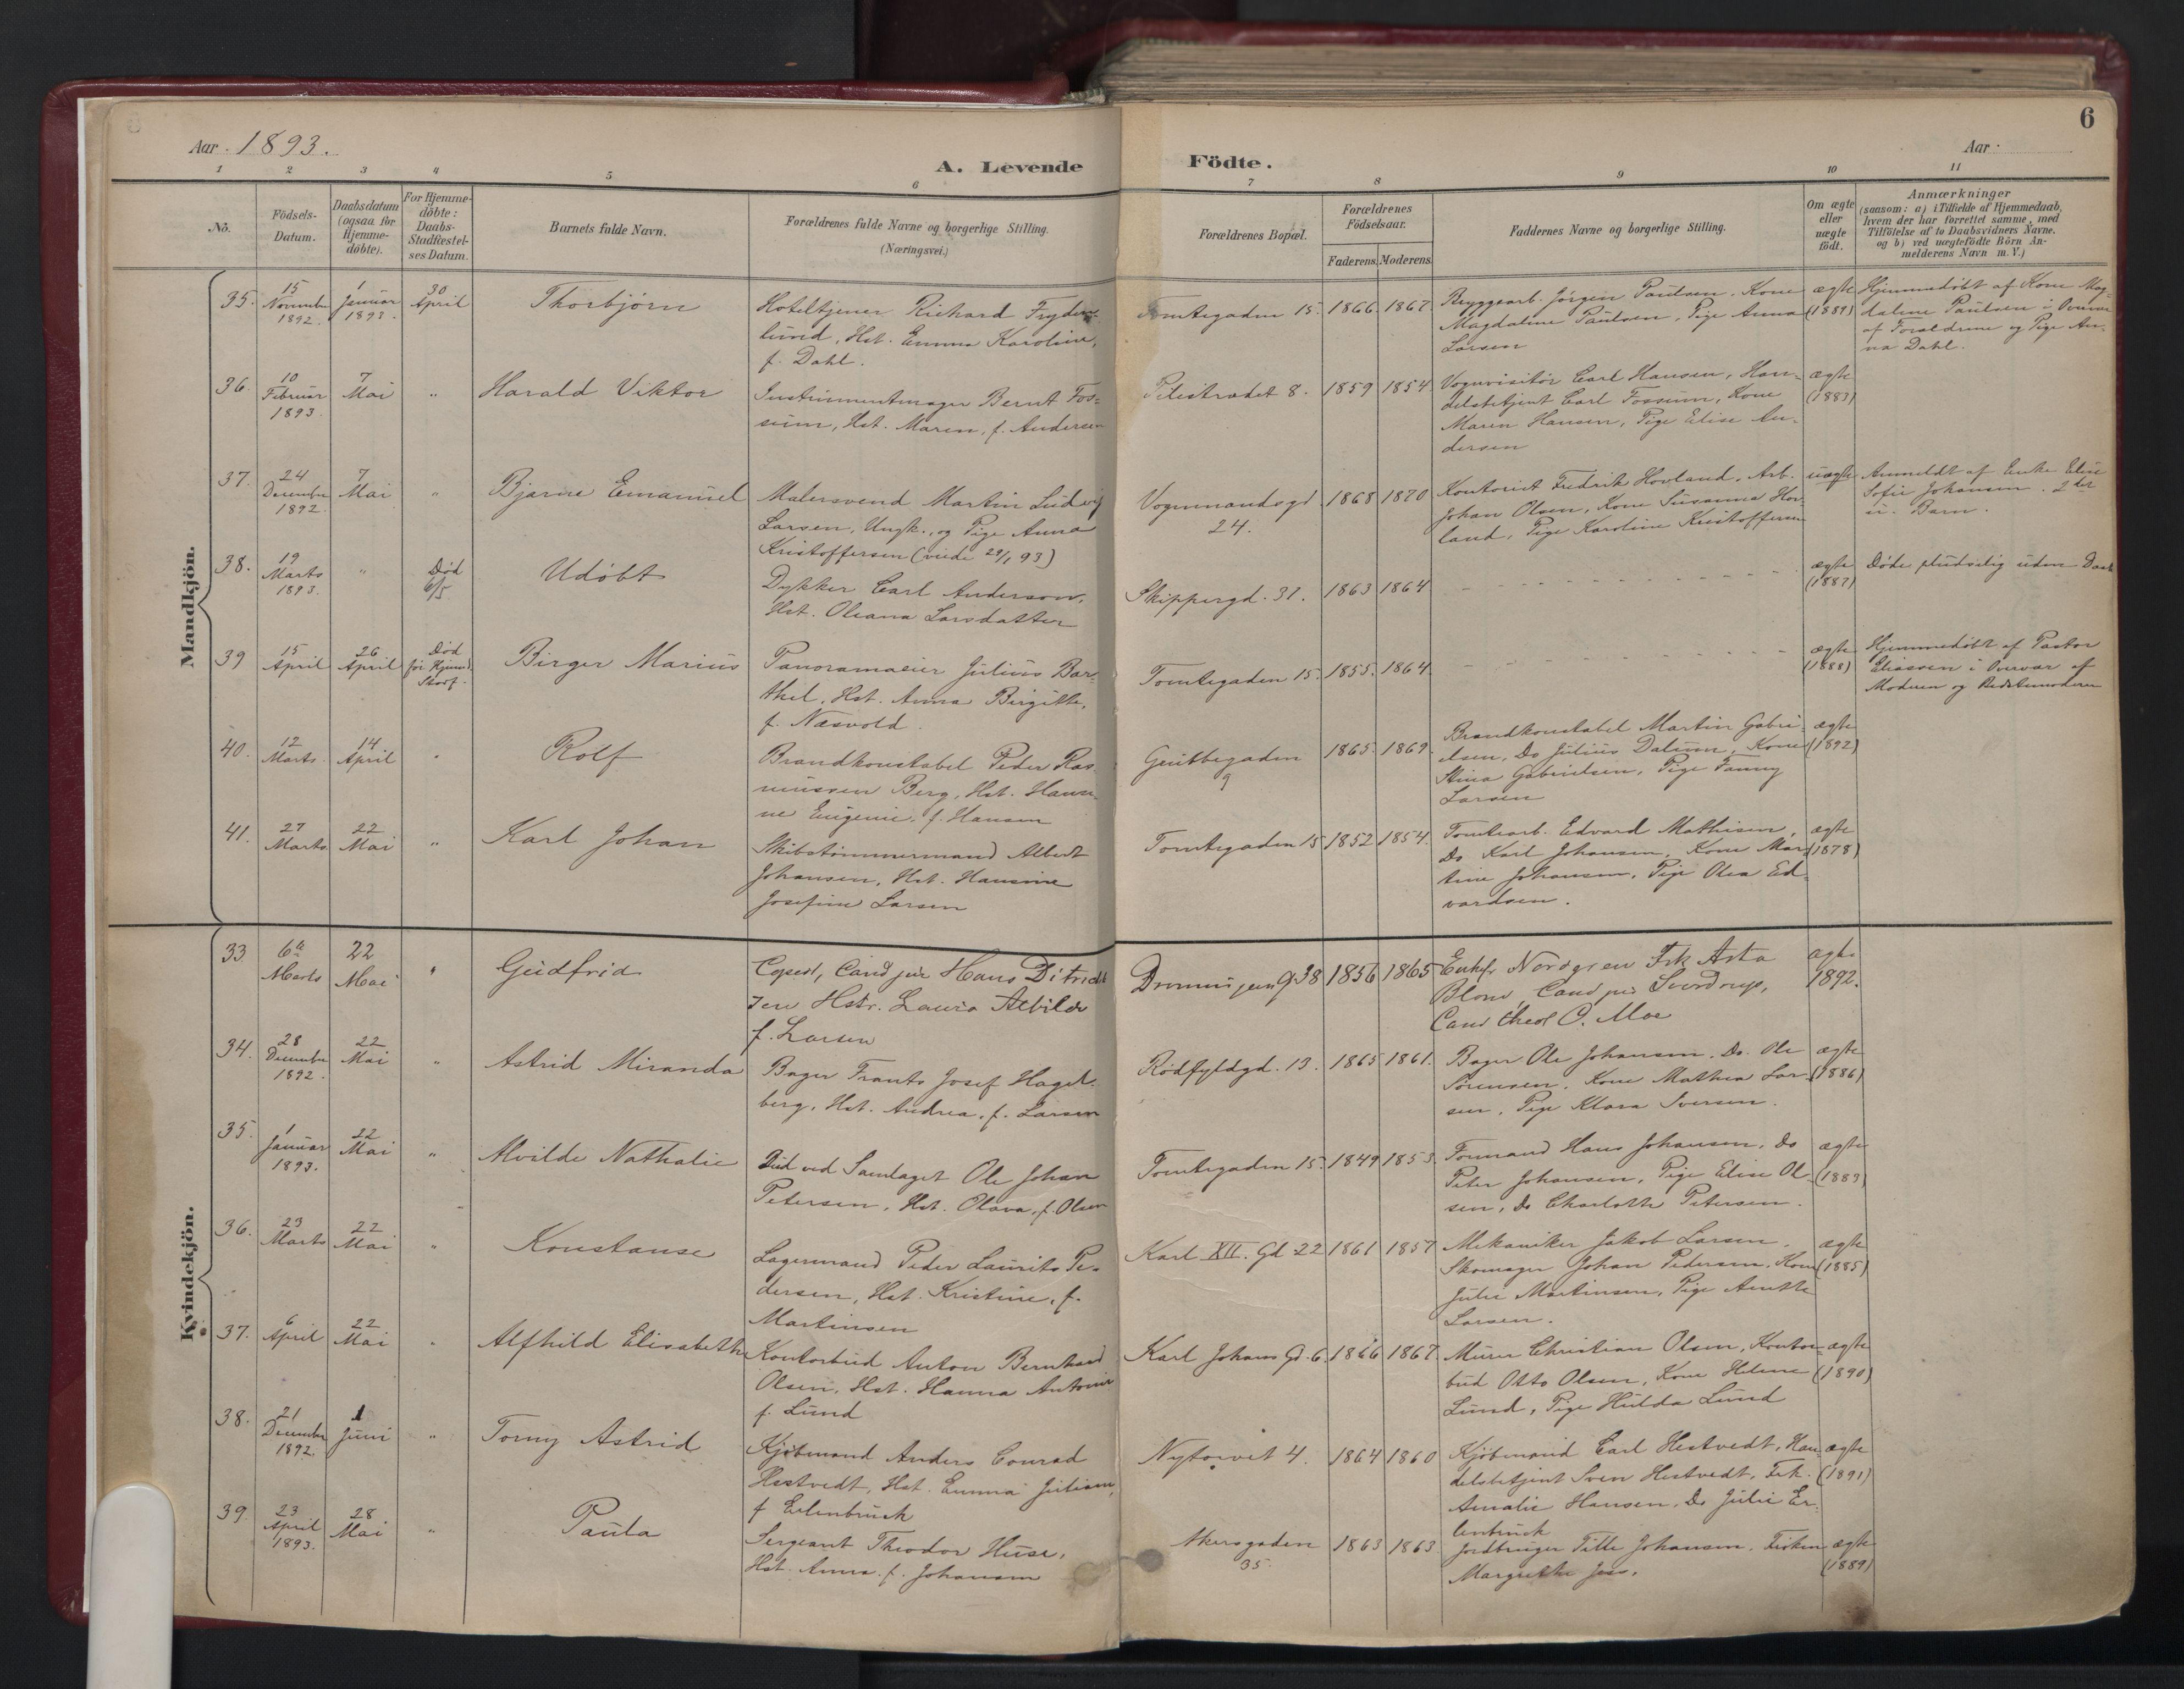 Aar 1893.
A. Levende
Födte.
Aar
6
1 2 3 4 5 6 7 8 9 10 11
No.
Födsels-Datum.
Daabsdatum (ogsaa for Hjemme-döbte).
For Hjemme-döbte: Daabs-Stadfæstel-ses Datum.
Barnets fulde Navn.
Forældrenes fulde Navne og borgerlige Stilling. (Næringsvei.)
Forældrenes Bopæl.
Forældrenes Födselsaar.
Faderens. Moderens.
Faddernes Navne og borgerlige Stilling.
Om ægte eller uægte födt.
Anmærkninger
(saasom: a) i Tilfælde af Hjemmedaab,
hvem der har forrettet samme, med
Tilföielse af to Daabsvidners Navne.
og b) ved uægtefödte Börn An-
melderens Navn m. V.)
Mandkjön.
35. 15 November 1892. 1 Januar 1893. 30 April Thorbjørn
Hoteltjener Richard Fryden-
lund, Hst. Emma Karoline,
f. Dahl.
Tomtegaden 15. 1866. 1867.
Bryggearb. Jørgen Paulsen, Kone
Magdalene Paulsen, Pige Anna
Larsen
ægte (1889)
Hjemmedøbt af Kone Mag-
dalene Paulsen i Overvær
af Forældrene og Pige An-
na Dahl.
36. 10 Februar 1893. 7 Mai " Harald Viktor
Instrumentmager Bernt Fos-
sum, Hst. Maren, f. Andersen
Pilestrædet 8. 1859 1854.
Vognvisitør Carl Hansen, Han-
delsbetjent Carl Fossum, Kone
Maren Hansen, Pige Elise An-
dersen
ægte (1883)
37. 24 December 1892. 7 Mai " Bjarne Emanuel
Malersvend Martin Ludvig
Larsen, Ungk., og Pige Anna
Kristoffersen (viede 29/1 93)
Vognmandsgd 24. 1868 1870
Kontorist Fredrik Hovland, Arb.
Johan Olsen, Kone Susanna Hov-
land, Pige Karoline Kristoffersen
uægte
Anmeldt af Enke Elise
Sofie Johansen. 2det
u. Barn.
38. 19 Marts 1893. " Død 6/5 Udøbt
Dykker Carl Anderson,
Hst. Oleana Larsdatter
Skippergd. 31. 1863 1864
ægte (1887)
Døde pludselig uden Daab
39 15 April 26 April Død før Hjemd. Stadf. Birger Marius
Panoramaeier Julius Bar-
thel, Hst. Anna Birgitte,
f. Næsvold.
Tomtegaden 15. 1855. 1864.
ægte (1888)
Hjemmedøbt af Pastor
Eliassen i Overvær af
Moderen og Bedstemoderen
40. 12 Marts. 14 April " Rolf
Brandkonstabel Peder Ras-
mussen Berg, Hst. Hansi-
ne Eugenie, f. Hansen
Grubbegaden 9 1865. 1869.
Brandkonstabel Martin Gabri-
elsen, Do Julius Dalum, Kone
Stina Gabrielsen, Pige Fanny
Larsen
ægte (1892)
41. 27 Marts 22 Mai " Karl Johan
Skibstømmermand Albert
Johansen, Hst. Hansine
Josefine Larsen
Tomtegaden 15 1852 1854.
Tomtearb. Edvard Mathisen,
Do Karl Johansen, Kone Mar-
tine Johansen, Pige Olea Ed-
vardsen.
ægte (1878)
Kvindekjön.
33. 6te Marts 22 Mai " Gudfrid
Hans
sen Hstr. Laura Alvilde
f. Larsen
38 1856 1865
Frk Asta
Blom, Cand jur Sverdrup,
Cand theol O. Moe
ægte 1892.
34. 28 December 1892. 22 Mai " Astrid Miranda
Bager Frants Josef Hagel-
berg, Hst. Andrea, f. Larsen
Rødfyldgd. 13. 1865 1861.
Bager Ole Johansen, Do. Ole
Sørensen, Kone Mathea Lar-
sen, Pige Klara Iversen.
ægte (1886)
35. 1 Januar 1893. 22 Mai " Alvilde Nathalie
Bud ved Samlaget Ole Johan
Petersen, Hst. Olava, f. Olsen
Tomtegaden 15. 1849 1853.
Formand Hans Johansen, Do
Peter Johansen, Pige Elise Ol-
sen, Do Charlotte Petersen.
ægte (1883)
36. 23 Marts 22 Mai " Konstanse
Lagermand Peder Laurits Pe-
dersen, Hst. Kristine, f.
Martinsen
Karl XII. Gd 22 1861 1857
Mekaniker Jakob Larsen.
Skomager Johan Pedersen, Kone
Julie Martinsen, Pige Anette
Larsen.
ægte (1885)
37. 6 April 22 Mai " Alfhild Elisabeth
Kontorbud Anton Bernhard
Olsen, Hst. Hanna Antonie
f. Lund
Karl Johans Gd. 6. 1866 1867.
Murer Christian Olsen, Kontor-
bud Otto Olsen, Kone Helene
Lund, Pige Hulda Lund
ægte (1890)
38. 21 December 1892. 1 Juni " Torny Astrid
Kjøbmand Anders Conrad
Hestvedt, Hst. Emma Juliane,
f Erlenbruck
Nytorvet 4. 1864 1860
Kjøbmand Carl Hestvedt, Han-
delsbetjent Sven Hestvedt, Frk.
Amalie Hansen, Do Julie Er-
lenbruck
ægte (1891)
39. 23 April 1893. 28 Mai " Paula
Sergeant Theodor Huse,
Hst. Anna, f. Johansen
Akersgaden 35. 1863 1863
Jordbruger Johansen,
Margrethe
ægte (1889)